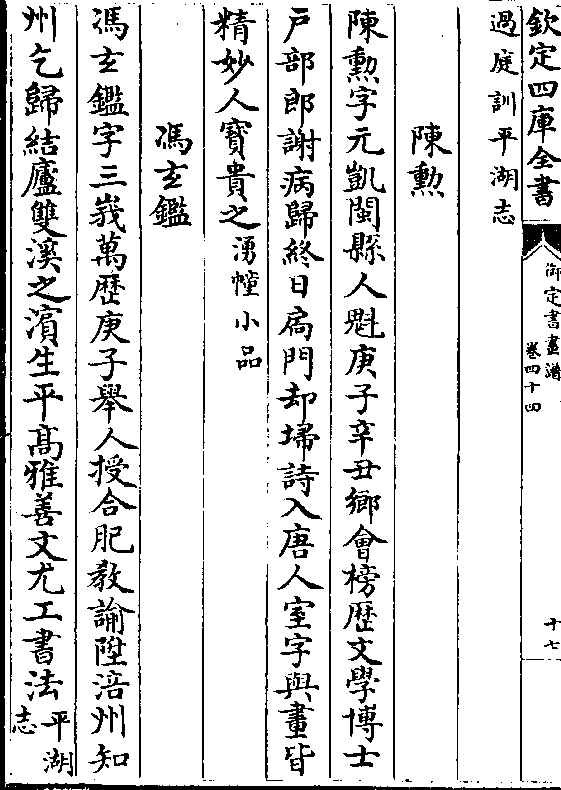 欽定四庫全書
御定書畫譜
卷四十四
十七
過庭訓平湖志
陳勲
陳勲字元凱閩縣人魁庚子辛丑鄉會榜歴文學博士
戶部郎謝病歸終日扄門却埽詩入唐人室字與畫皆
精妙人寳貴之湧幢小品
馮玄鑑
馮玄鑑字三峩萬歴庚子舉人授合肥教諭陞涪州知
州乞歸結廬雙溪之濱生平髙雅善文尤工書法平湖志